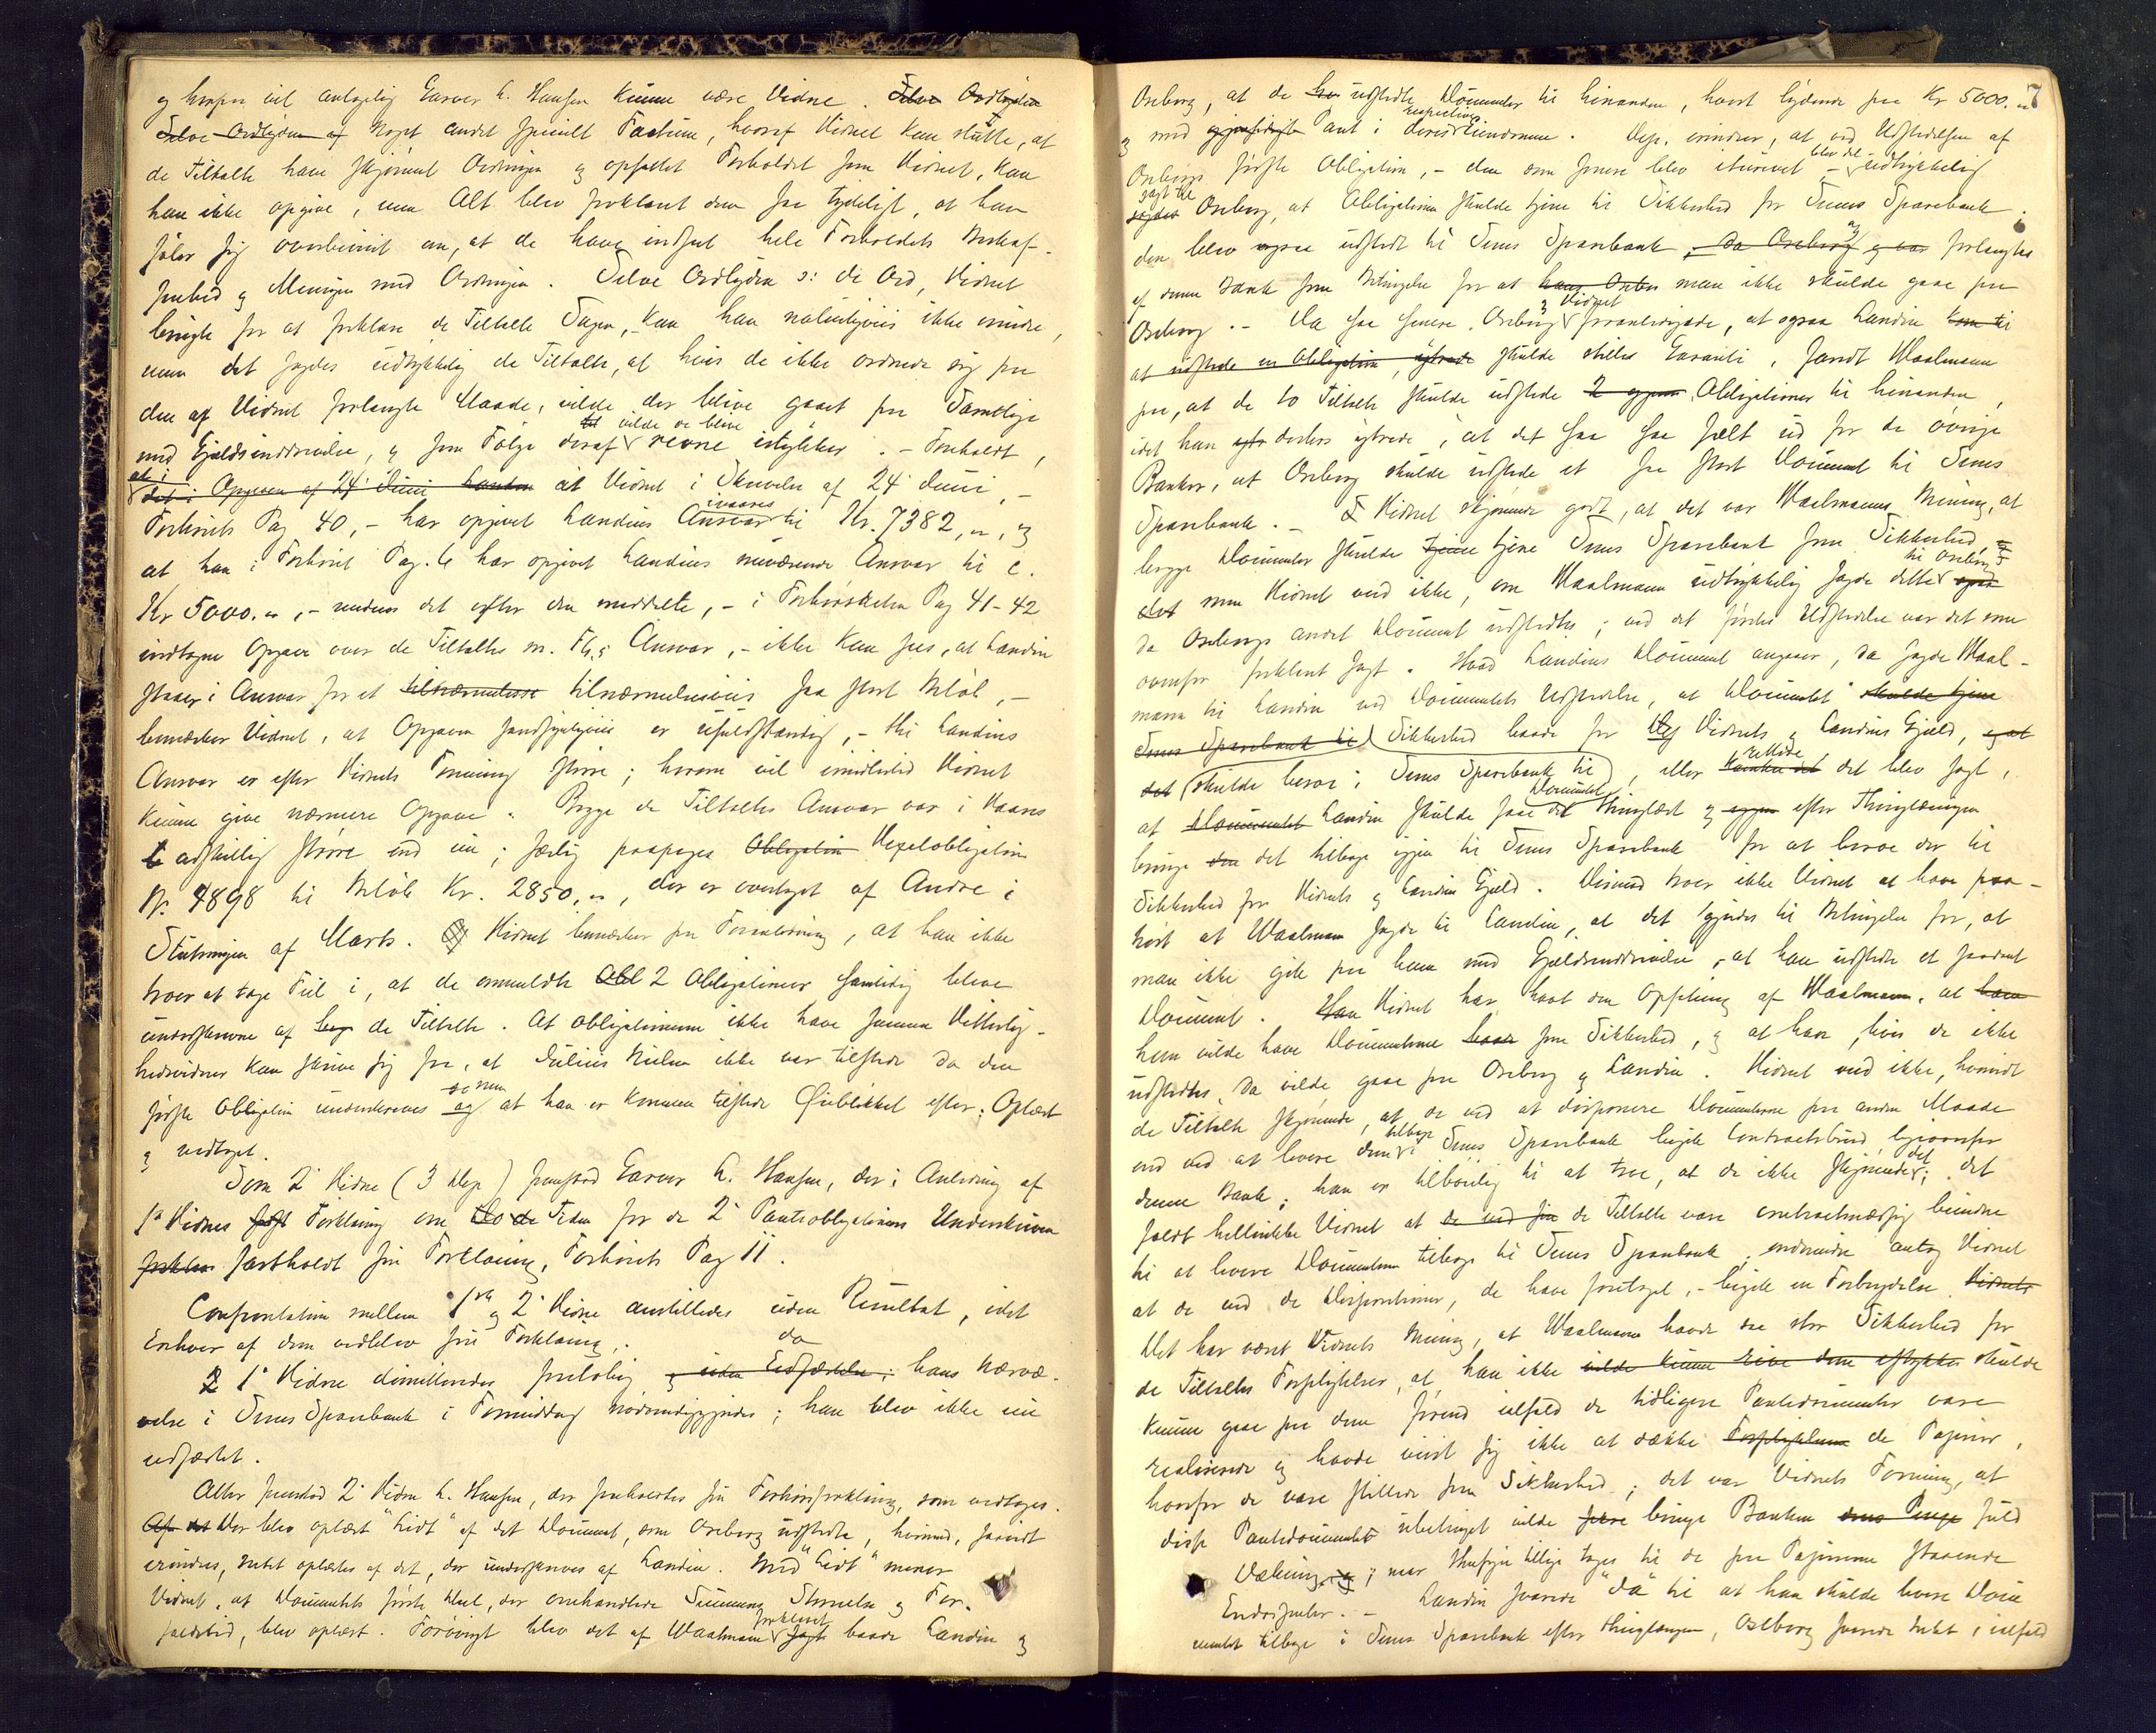 og hvorpaa vil antagelig Garver L. Hansen kunne være Vidne. Selve Ordlyden
Selve Ordlyden af Noget andet specielt Factum, hvoraf Vidnet kan slutte, at
de Tiltalte have skjønnet Ordningen og opfattet Forholdet som Vidnet, kan
han ikke opgive, men Alt blev forklaret dem saa tydeligt, at han
føler sig overbevist om, at de have indseet hele Forholdets Beskaf-
fenhed og Meningen med Ordningen. Selve Ordlyden ɔ: de Ord, Vidnet
brugte for at forklare de Tiltalte Sagen, kan han naturligvis ikke erindre,
men det sagdes udtrykkelig de Tiltalte, at hvis de ikke ordnede sig paa
den af Vidnet forlangte Maade, vilde der blive gaaet paa Samtlige
til vilde de blive
med Gjældsinddrivelse, og som Følge deraf revne istykker. - Foreholdt,
at i
det i Opgaven af 24' Juni Landin at Vidnet i Skrivelse af 24' Juni, -
ivaares
Forhørets Pag 40, - har opgivet Landins Ansvar til Kr. 7382, og
at han i Forhøret Pag. 6 har opgivet Landins nuværende Ansvar til c.
Kr 5000. -, - medens det efter den meddelte, - i Forhørsakten Pag 41-42
indtagne Opgave over de Tiltaltes m. Fl.s Ansvar, - ikke kan sees, at Landin
staaer i Ansvar for et tilnærmelsesv tilnærmelsesvis saa stort Beløb, -
bemærker Vidnet, at Opgaven sandsynligvis er ufuldstændig, - thi Landins
Ansvar er efter Vidnets Formening større; herom vil imidlertid Vidnet
kunne give nærmere Opgave. Begge de Tiltaltes Ansvar var i Vaares
adskillig større end nu; særlig paapeges Obligation Vexelobligation
No. 4898 til Beløb Kr. 2850, -, der er overtaget af Andre i
Slutningen af Marts. Vidnet bemærker paa Foranledning, at han ikke
troer at tage Feil i, at de ommeldte Obl 2 Obligationer samtidig bleve
underskrevne af beg de Tiltalte. At Obligationerne ikke have samme Vitterlig-
hedsvidner kan skrive sig fra, at Julius Nielsen ikke var tilstede da den
men
første Obligation underskreves og at han er kommen tilstede Øieblikket efter. Oplæst
og vedtaget.
Som 2' Vidne (3 Dep) fremstod Garver L. Hansen, der i Anledning af
1ste Vidnes Forklaring om Tiden for de 2 Panteobligationers Underskrivn
forklar fastholdt sin Forklaring, Forhørets Pag 11.
Confrontation mellem 1ste og 2' Vidne anstilledes uden Resultat, idet
Enhver af dem vedblev sin Forklaring.
da
2 1' Vidne dimitteredes foreløbig og uden Edfæstelse: hans Nærvæ-
relse i Sems Sparebank i Formiddag nødvendiggjordes; han blev ikke nu
edfæstet.
Atter fremstod 2' Vidne L. Hansen, der foreholdtes sin Forhørsforklaring, som vedtoges.
Af det Der blev oplæst "Lidt" af det Document, som Oreberg udstedte, hvorimod, saavidt
erindres, Intet oplæstes af det, der underskreves af Landin. Med "Lidt" mener
Vidnet, at Documentets første Deel, der omhandlede Summens Størrelse og For-
forklaret
faldstid, blev oplæst. Forøvrigt blev det af Waalmann sagt baade Landin og
7
Oreberg, at de udstedte Documenter til hinanden, hvert lydende paa Kr 5000. -
respective
og med gjensidigt Pant i deres Eiendomme. Dep. erindrer, at ved Udstedelsen af
blev det
Orebergs første Obligation, - den som senere blev iturevet - udtrykkelig
sagt til
sagdes Oreberg, at Obligationen skulde tjene til Sikkerhed for Sems Sparebank.
den blev ogsaa udstedt til Sems Sparebank, da Oreberg og var forlangtes
af denne Bank som Betingelse for at man ikke skulde gaae paa
og Vidnet
Oreberg. - Da saa senere Oreberg foranledigede, at ogsaa Landin kom til
at udstede en Obligation, ytrede skulde stilles Garanti, fandt Waalmann
paa, at de to Tiltalte skulde udstede 2 Obligationer til hinanden,
idet han derhos ytrede, at det saa saa fælt ud for de øvrige
Banker, at Oreberg skulde udstede et saa stort Document til Sems
Sparebank. - Vidnet skjønnede godt, at det var Waalmanns Mening, at
begge Documenter skulde tjene tjene Sems Sparebank som Sikkerhed,
til Oreberg
men Vidnet ved ikke, om Waalmann udtrykkelig sagde dette
da Orebergs andet Document udstedtes; ved det førstes Udstedelse var det som
ovenfor forklaret sagt. Hvad Landins Document angaaer, da sagde Waal-
mann til Landin ved Documentets Udstedelse, at Documentet skulde tjene
Sems Sparebank til Sikkerhed baade for Vidnets og Landins Gjæld, og at
rettere
det skulde beroe i Sems Sparebank til, eller det blev sagt,
Documentet
at Documentet Landin skulde faae det thinglæst og efter Thinglæsningen
bringe det tilbage igjen til Sems Sparebank for at beroe der til
Sikkerhed for Vidnets og Landins Gjæld. Derimod troer ikke Vidnet at have paa-
hørt at Waalmann sagde til Landin, at det gjordes til Betingelse for, at
man ikke gik paa ham med Gjældsinddrivelse, at han udstedte et saadant
Document. Han Vidnet har havt den Opfatning af Waalmann, at han
han vilde have Documenterne som Sikkerhed, og at han, hvis de ikke
udstedtes, da vilde gaae paa Oreberg og Landin. Vidnet ved ikke, hvorvidt
de Tiltalte skjønnede, at de ved at disponere Documenterne paa anden Maade
tilbage
end ved at levere dem i Sems Sparebank begik Contractsbrud ligeoverfor
det
denne Bank; han er tilbøielig til at troe, at de ikke skjønnede; det
faldt hellerikke Vidnet at de Tiltalte vare contractmæssig bundne
til at levere Documenterne tilbage til Sems Sparebank, endmindre antog Vidnet
at de ved de Dispositioner, de have foretaget, - begik en Forbrydelse. Vidnets
Det har været Vidnets Mening, at Waalmann havde saa stor Sikkerhed for
de Tiltaltes Forpligtelser, at han ikke vilde kunne rive dem istykker skulde
kunne gaae paa dem førend ialfald de tidligere Pantedocumenter vare
realiserede og havde viist sig ikke at dække Forpligtelserne de Papirer,
hvorfor de vare stillede som Sikkerhed; det var Vidnets Formening, at
disse Pantedocumenter ubetinget vilde bringe Banken fuld
Dækning; naar Hensyn tillige toges til de paa Papirerne staaende
Endossenter. - Landin svarede "Ja" til at han skulde levere Docu
mentet tilbage i Sems Sparebank efter Thinglæsningen, Oreberg svarede Intet, ialfald